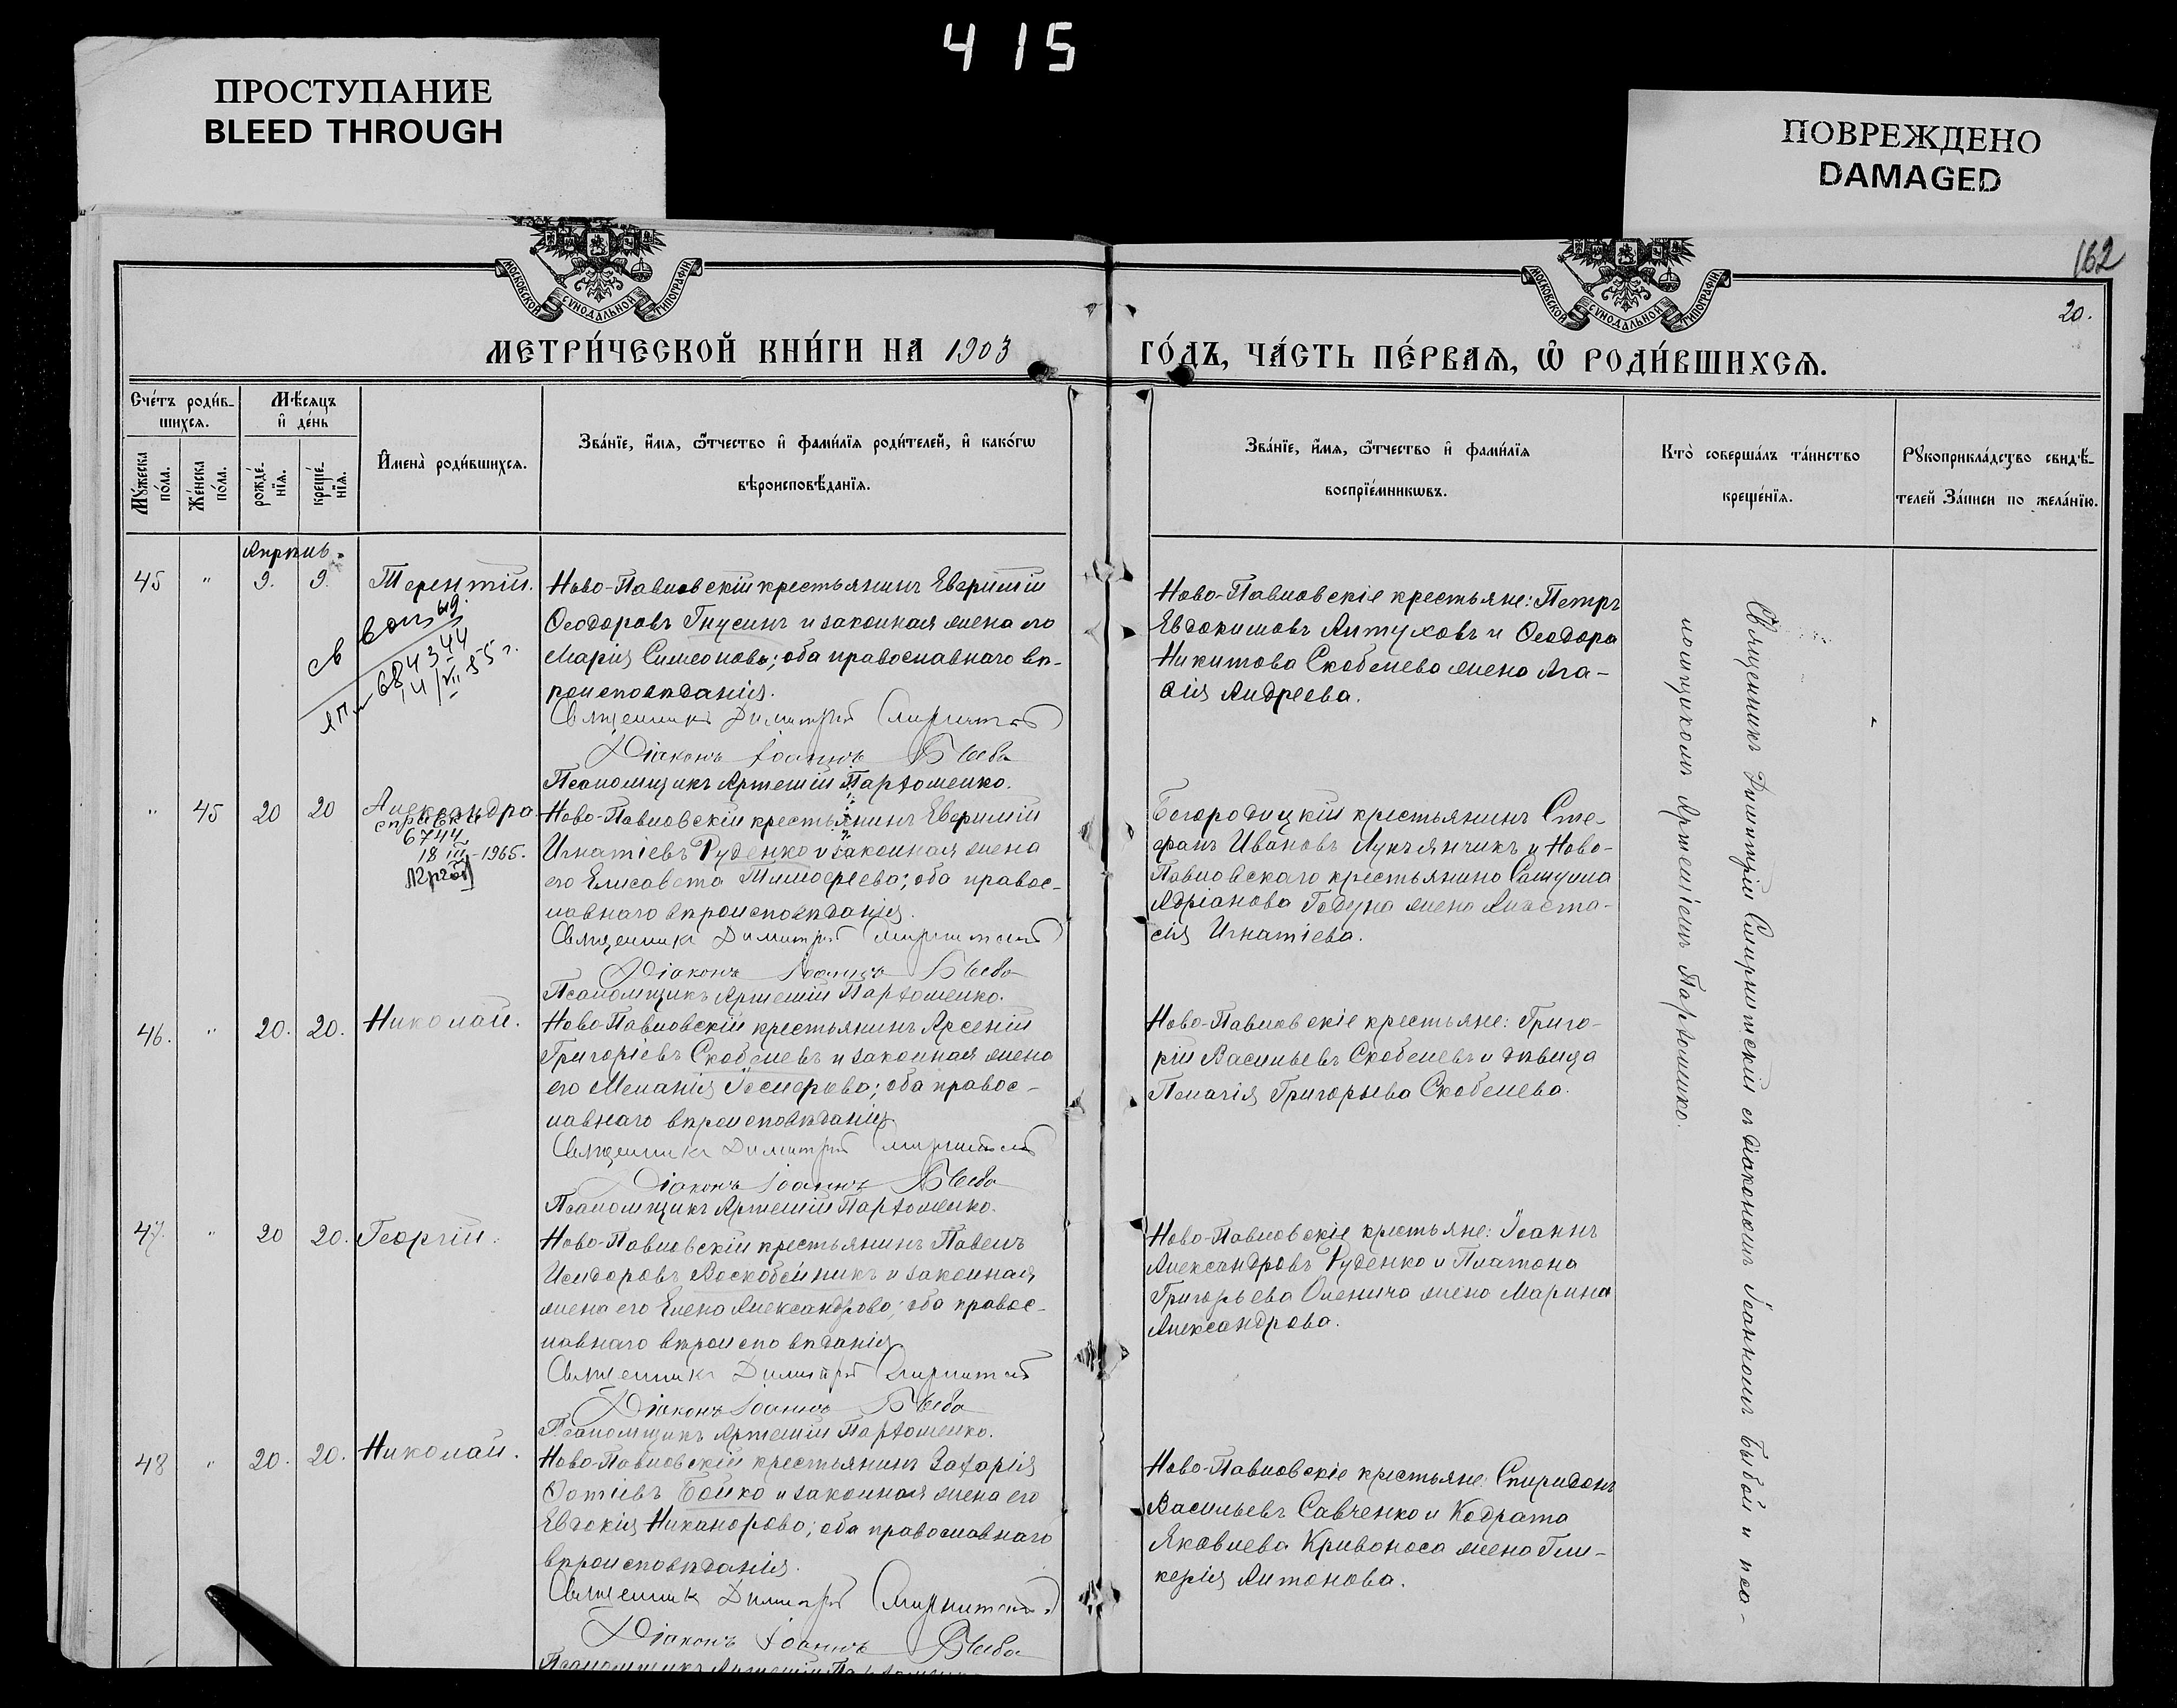 415
ПРОСТУПАНИЕ
BLEED THROUGH
ПОВРЕЖДЕНО
DAMAGED
162
20.
МОСКОВСКОЙ СѴНОДАЛЬНОЙ ТИПОГРАФІИ
МОСКОВСКОЙ СѴНОДАЛЬНОЙ ТИПОГРАФІИ
МЕТРИ́ЧЕСКОЙ КНИ́ГИ НА 1903
ГО́ДЪ, ЧА́СТЬ ПЕ́РВАѦ, Ѽ РОДИ́ВШИХСѦ.
Сче́тъ роди́в-
шихсѧ.
Мꙋ́жеска по́ла.
Же́нска по́ла.
Мѣ́сѧцъ
и҆ де́нь
рожде́-
нїѧ.
креще́-
нїѧ.
И҆мена̀ роди́вшихсѧ.
Зва́нїе, и҆́мѧ, ѻ҆́тчество и҆ фами́лїѧ роди́телей, и҆ како́гѡ
вѣроисповѣ́данїѧ.
Зва́нїе, и҆́мѧ, ѻ҆́тчество и҆ фами́лїѧ
воспрїе́мникѡвъ.
Кто̀ соверша́лъ та́инство
креще́нїѧ.
Рꙋкоприкла́дство свидѣ́-
телей За́писи по жела́нїю.
Апрѣль.
45 " 9. 9. Терентій.
св
684344
14/VII 85 г.
Ново-Павловскій крестьянинъ Евѳимій
Ѳеодоровъ Гнусинъ и законная жена его
Марія Симеонова; оба православнаго вѣ-
роисповѣданія.
Священникъ Димитрій Смирнитскій
Діаконъ Іоаннъ Быба
Псаломщикъ Артемій Парѳоменко.
Ново-Павловскіе крестьяне: Петръ
Евдокимовъ Алтуховъ и Ѳеодора
Никитова Скобелева жена Ага-
ѳія Андреева.
" 45 20 20 Александра.
справка
6744
18 III-1965.
Ново-Павловскій крестьянинъ Евѳимій
Игнатіевъ Руденко и законная жена
его Елисавета Тимоѳеева; оба правос-
лавнаго вѣроисповѣданія.
Священникъ Димитрій Смирнитскій
Діаконъ Іоаннъ Быба
Псаломщикъ Артемій Парѳоменко.
Богородицкій крестьянинъ Сте-
фанъ Ивановъ Лукъянчикъ и Ново-
Павловскаго крестьянина Самуила
Адріанова Годуна жена Анаста-
сія Игнатіева.
46. " 20. 20. Николай.
Ново-Павловскій крестьянинъ Арсеній
Григоріевъ Скобелевъ и законная жена
его Меланія Іосифова; оба правос-
лавнаго вѣроисповѣданія.
Священникъ Димитрій Смирнитскій
Діаконъ Іоаннъ Быба
Псаломщикъ Артемій Парѳоменко.
Ново-Павловскіе крестьяне: Григо-
рій Васильевъ Скобелевъ и дѣвица
Пелагія Григорьева Скобелева.
47. " 20 20. Георгій.
Ново-Павловскій крестьянинъ Павелъ
Исидоровъ Воскобойникъ и законная
жена его Елена Александрова; оба правос-
лавнаго вѣроисповѣданія.
Священникъ Димитрій Смирнитскій
Діаконъ Іоаннъ Быба
Псаломщикъ Артемій Парѳоменко.
Ново-Павловскіе крестьяне: Іоаннъ
Александровъ Руденко и Платона
Григорьева Оленича жена Марина
Александрова.
48 " 20. 20. Николай.
Ново-Павловскій крестьянинъ Захарія
Фотіевъ Бойко и законная жена его
Евдокія Никанорова; оба православнаго
вѣроисповѣданія.
Священникъ Димитрій Смирнитскій
Діаконъ Іоаннъ Быба
Псаломщикъ Артемій Парѳоменко
Ново-Павловскіе крестьяне: Спиридонъ
Васильевъ Савченко и Кодрата
Яковлева Кривоноса жена Гли-
керія Антонова.
Священникъ Димитрій Смирнитскій съ діакономъ Іоанномъ Быбой и пса-
ломщикомъ Артеміемъ Парѳоменко.